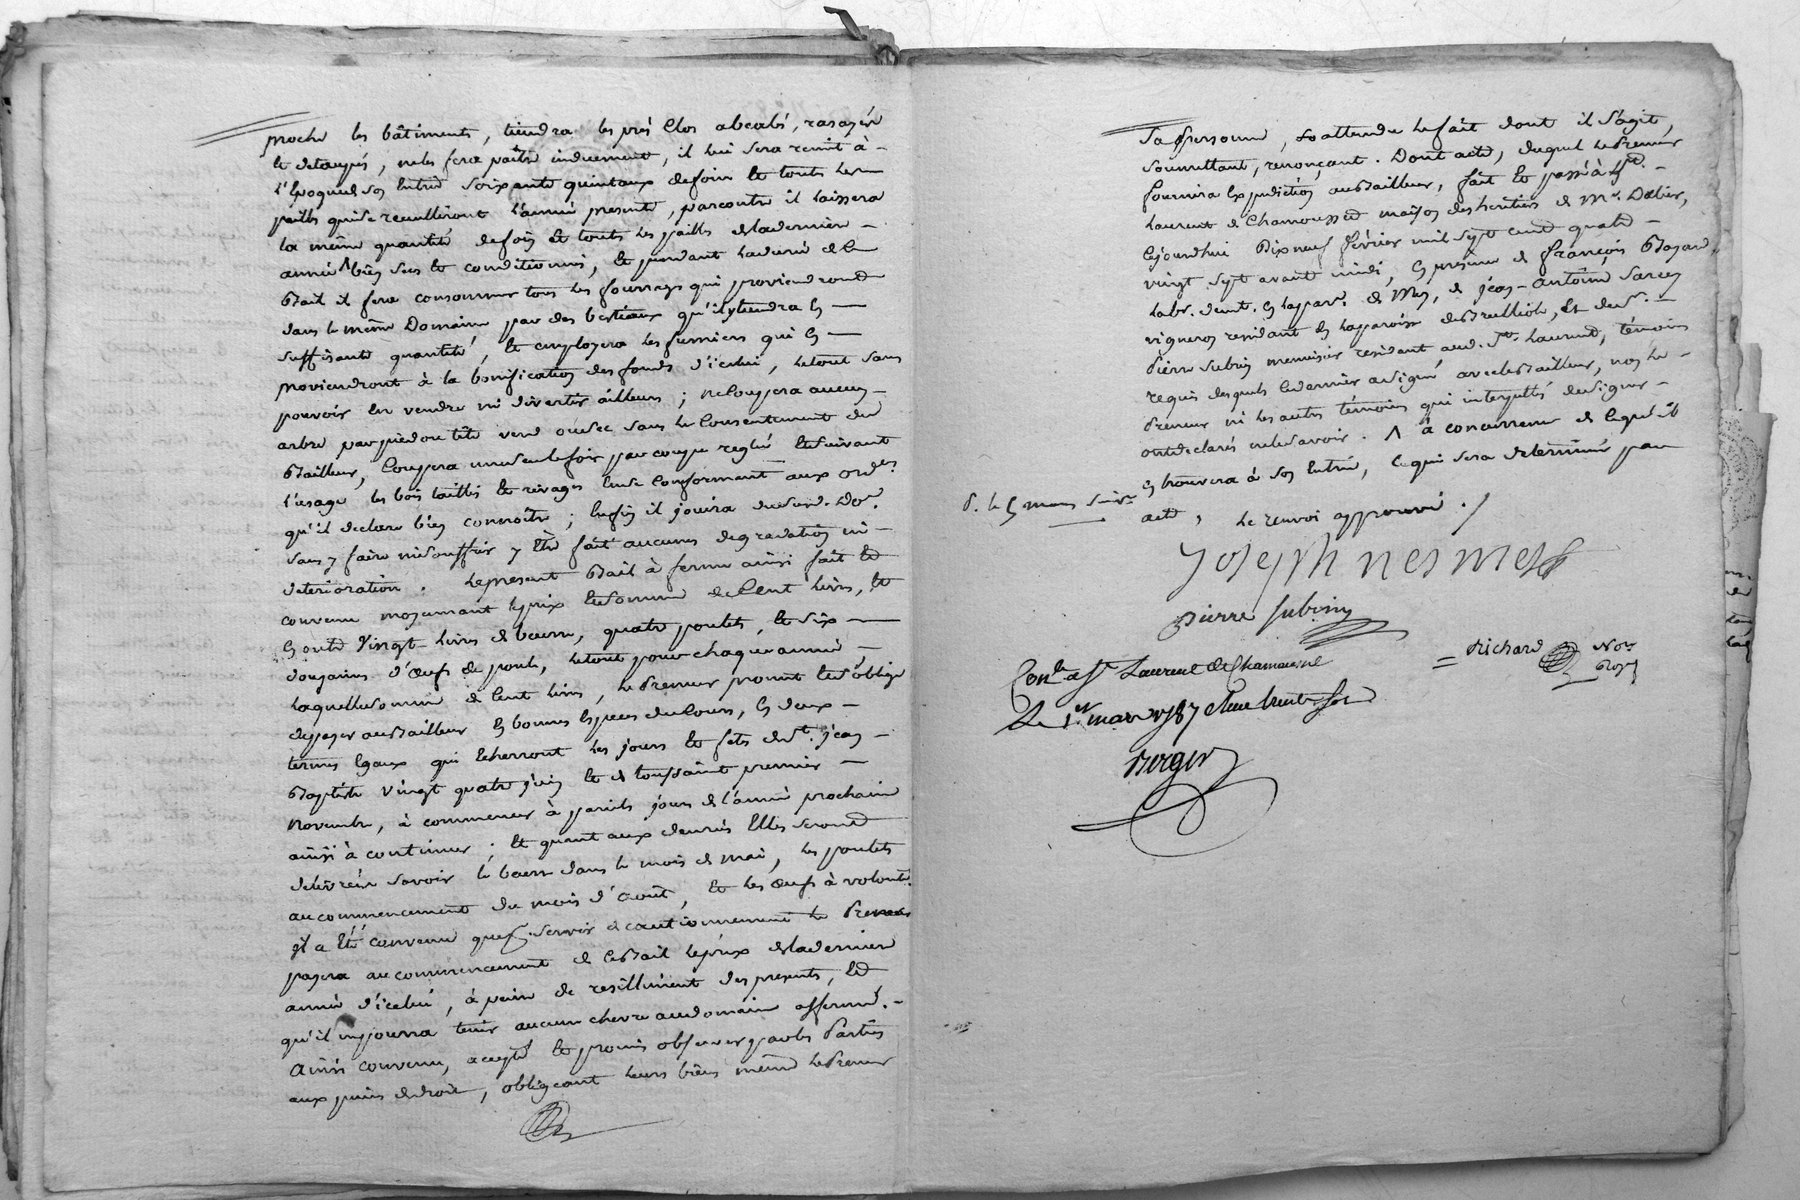 proche les bâtiments, tiendra les prés clos abealés, rasazés
et détaupés, ne les fera paître induement, il lui sera remit à
l'Epoque de son Entrée soixante quintaux de foin et touts les
pailles qui se recuilliront l'année presente, par contre il laissera
la même quantité de foin et touts les pailles de la derniere
année ^ bien secs et conditionnés, et pendant la durée de ce
Bail il fera consommer tous les fourrages qui proviendront
dans le même Domaine par des bestiaux qu'il y tiendra En
suffisante quantité, et employera les fumiers qui En
proviendront à la bonification des fonds d'icelui, le tout sans
pouvoir En vendre ni divertir ailleurs ; ne Coupera aucun
arbre par pied ou tête verd ou sec sans le Consentement du
Bailleur, Coupera une seule fois par coupe reglée et suivant
l'usage les bois taillis et rivages En se Conformant aux ord.es
qu'il declare bien connoitre ; Enfin il jouira du susd. Do.e
sans y faire ni souffrir y Etre fait aucunes degradation ni
deterioration. Le present Bail à ferme ainsi fait et
convenu moyennant le prix et somme de Cent livres, et
En outre vingt livres de beurre, quatre poulets, et six
douzaines d'œufs de poule, le tout pour chaque année
laquelle somme de Cent livres, le Preneur promet et s'oblige
de payer au Bailleur En bonnes Especes du Cours, En deux
termes Egaux qui Echerront les jours et fete de St. jean
Baptiste vingt quatre juin et de toussaint premier
Novembre, à commencer à pareils jours de l'année prochaine
ainsi à continuer ; Et quant aux denrées Elles seront
délivrées savoir le beurre dans le mois de mai, les poulets
au commencement du mois d'août, et les œufs à volonté.
Il a Eté convenu que pr. servir de cautionnement le Preneur
payera au commencement de ce Bail le prix de la derniere
année d'icelui, à peine de resiliment des presents, Et
qu'il ne pourra tenir aucune chevre au domaine affermé.
Ainsi convenu, accepté et promis observer par les Parties
aux peines de droit, obligeant leurs biens même le Preneur
sa Personne, Et attendu le fait dont il s'agit,
soumettant, renonçant. Dont acte, duquel le Preneur
fournira Expedition au Bailleur, fait et passé à St.
Laurent de Chamousset maison des heritiers de Mr. Dalier,
Cejourdhui Dixneuf février mil sept cent quatre
vingt sept avant midi, En presence de françois Bazard,
labr. demt. En la parr. de Mes, de jean-antoine Sarcey
vigneron residant En la paroisse de Brullioles, Et de Sr.
Pierre Subrin menuisier residant aud. St. Laurent, témoins
requis desquels le dernier a signé avec le Bailleur, non le
Preneur ni les autres témoins qui interpellés de signer
ont declarés ne le savoir. ^ à concurrence de ce qu'il
En trouvera à son Entrée, ce qui sera determiné par
P. le 5 mars suiv.
acte, le renvoi approuvé. /
Joseph nesmes
Pierre subrin
= Richard Nore
Royal
Con.le a St Laurent de Chamousset
Le 1er mars 1787 Reçu trente sols
Berger